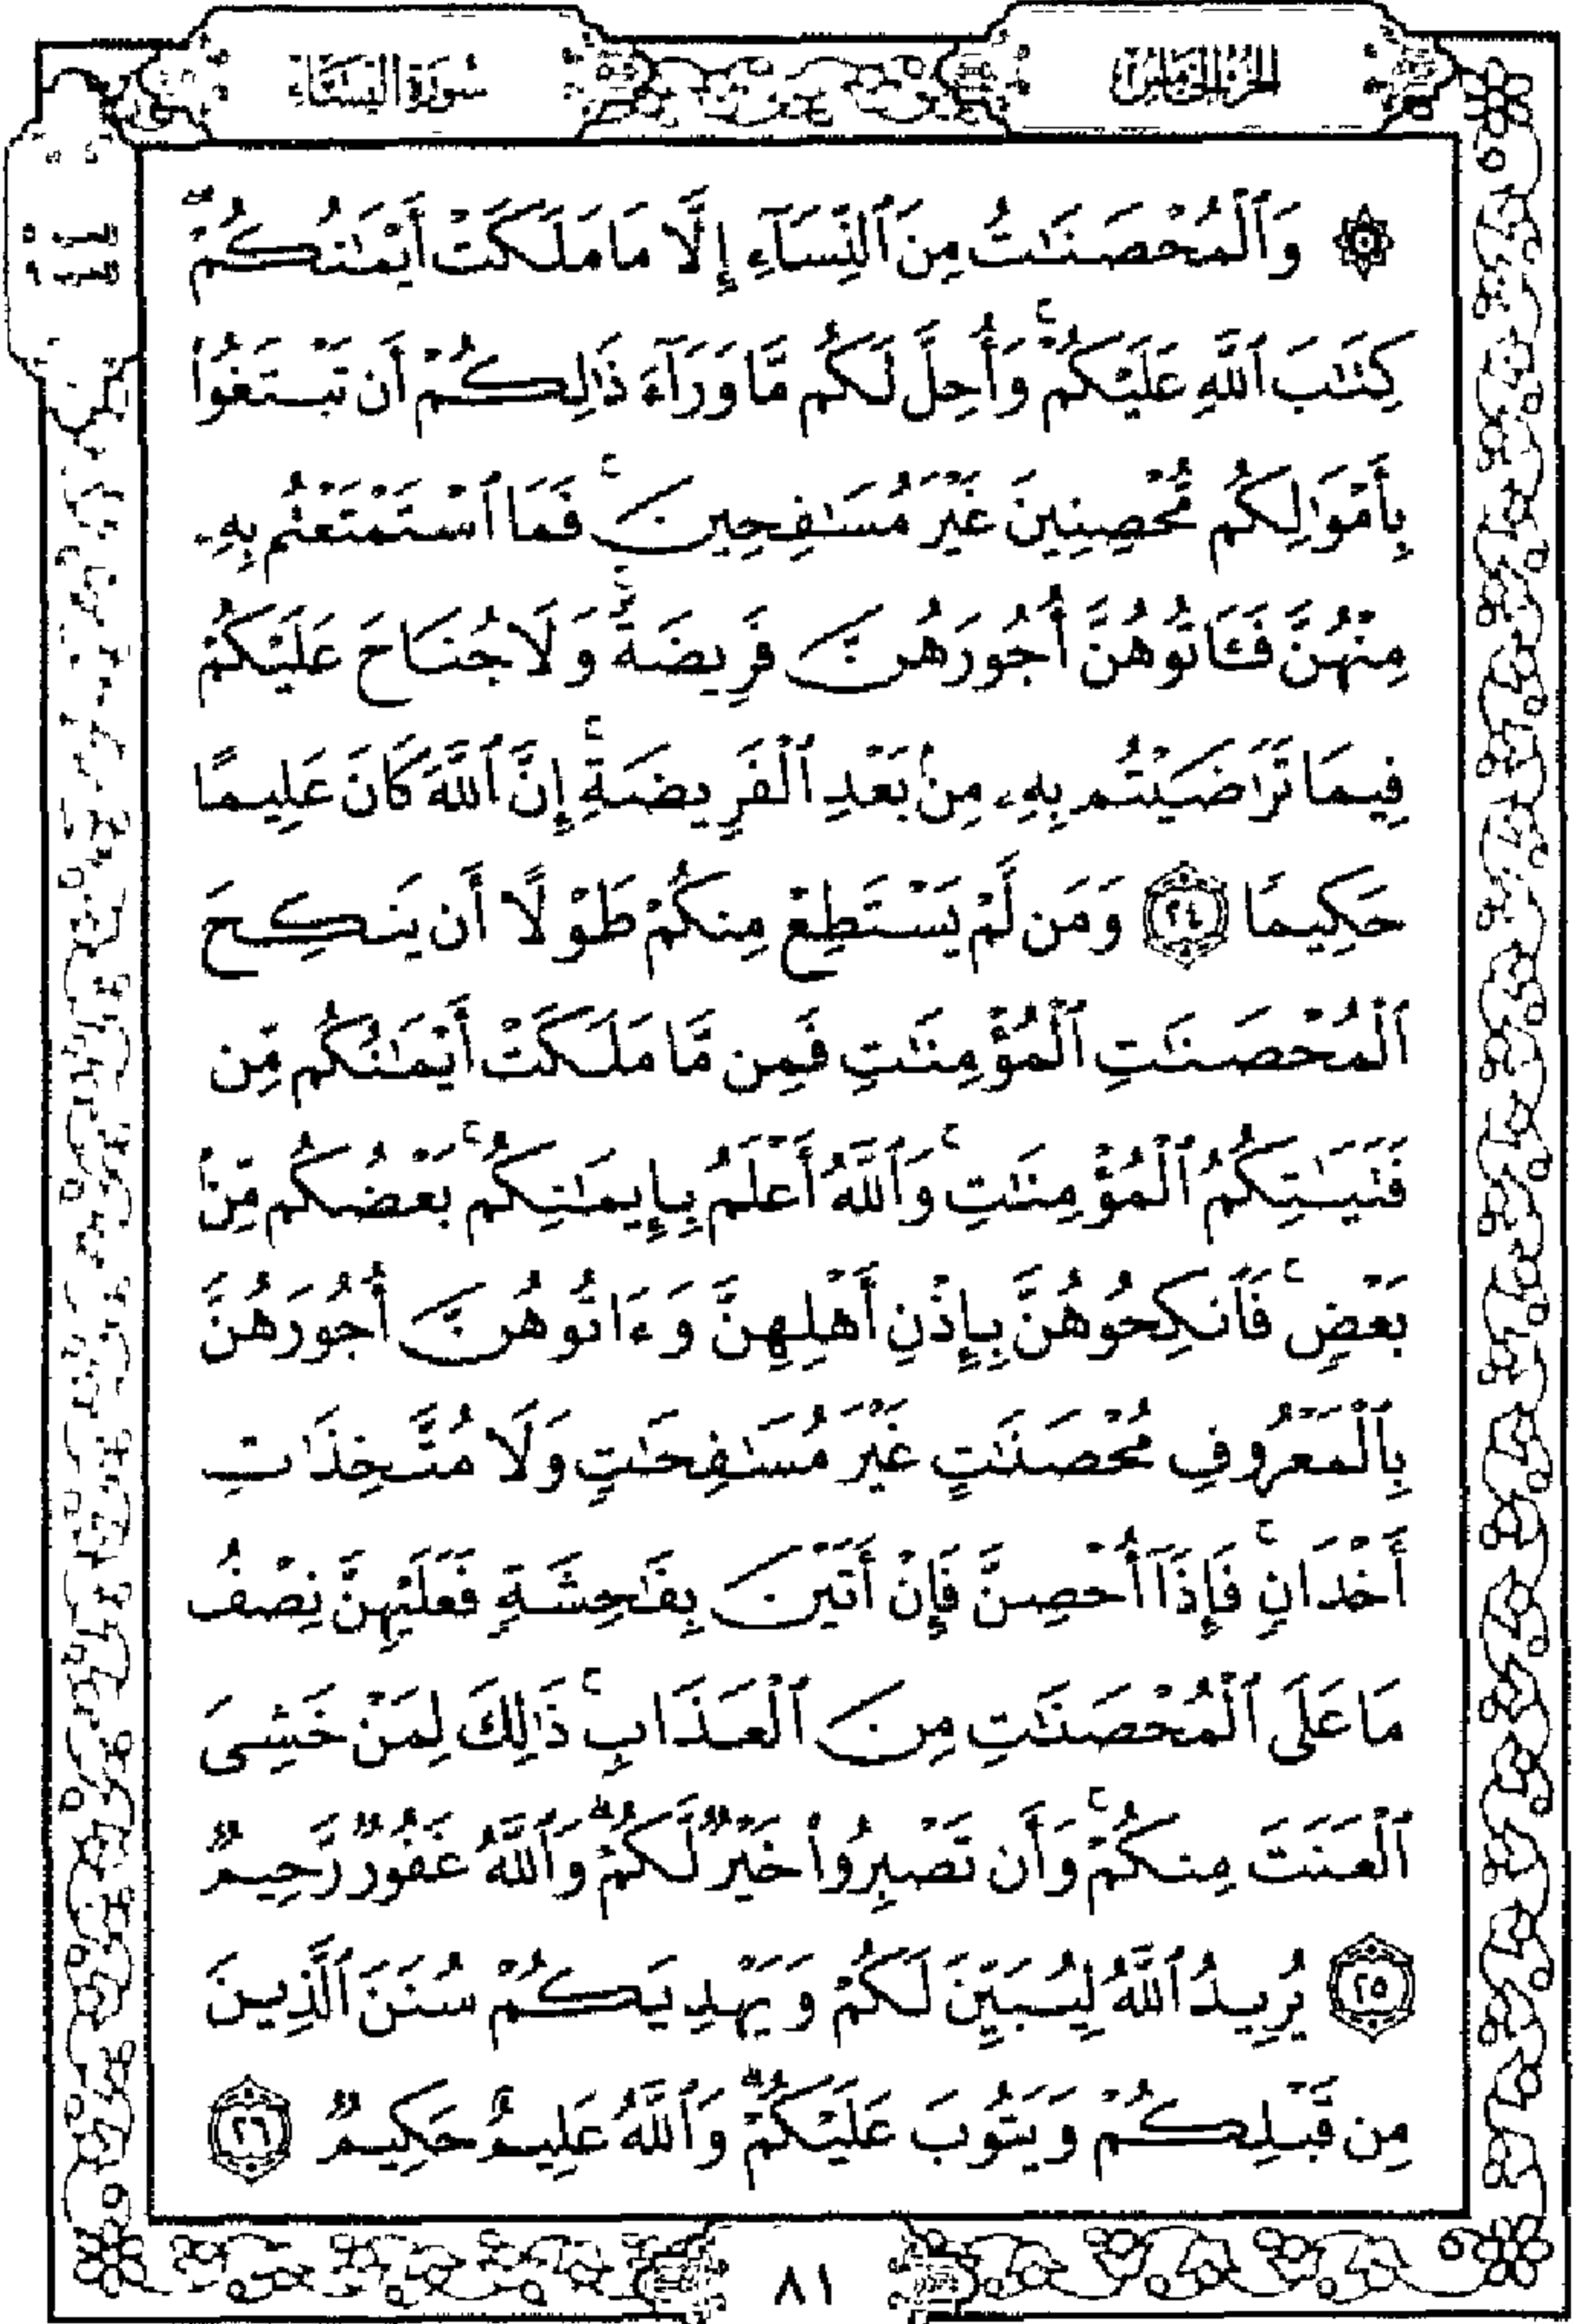 سُورَةُ النِّسَاءِ
الجزء الخامس
۞ وَٱلْمُحْصَنَـٰتُ مِنَ ٱلنِّسَآءِ إِلَّا مَا مَلَكَتْ أَيْمَـٰنُكُمْ ۖ
كِتَـٰبَ ٱللَّهِ عَلَيْكُمْ ۚ وَأُحِلَّ لَكُم مَّا وَرَآءَ ذَٰلِكُمْ أَن تَبْتَغُوا۟
بِأَمْوَٰلِكُم مُّحْصِنِينَ غَيْرَ مُسَـٰفِحِينَ ۚ فَمَا ٱسْتَمْتَعْتُم بِهِۦ
مِنْهُنَّ فَـَٔاتُوهُنَّ أُجُورَهُنَّ فَرِيضَةً ۚ وَلَا جُنَاحَ عَلَيْكُمْ
فِيمَا تَرَٰضَيْتُم بِهِۦ مِنۢ بَعْدِ ٱلْفَرِيضَةِ ۚ إِنَّ ٱللَّهَ كَانَ عَلِيمًا
حَكِيمًا ٢٤ وَمَن لَّمْ يَسْتَطِعْ مِنكُمْ طَوْلًا أَن يَنكِحَ
ٱلْمُحْصَنَـٰتِ ٱلْمُؤْمِنَـٰتِ فَمِن مَّا مَلَكَتْ أَيْمَـٰنُكُم مِّن
فَتَيَـٰتِكُمُ ٱلْمُؤْمِنَـٰتِ ۚ وَٱللَّهُ أَعْلَمُ بِإِيمَـٰنِكُم ۚ بَعْضُكُم مِّنۢ
بَعْضٍ ۚ فَٱنكِحُوهُنَّ بِإِذْنِ أَهْلِهِنَّ وَءَاتُوهُنَّ أُجُورَهُنَّ
بِٱلْمَعْرُوفِ مُحْصَنَـٰتٍ غَيْرَ مُسَـٰفِحَـٰتٍ وَلَا مُتَّخِذَٰتِ
أَخْدَانٍ ۚ فَإِذَآ أُحْصِنَّ فَإِنْ أَتَيْنَ بِفَـٰحِشَةٍ فَعَلَيْهِنَّ نِصْفُ
مَا عَلَى ٱلْمُحْصَنَـٰتِ مِنَ ٱلْعَذَابِ ۚ ذَٰلِكَ لِمَنْ خَشِىَ
ٱلْعَنَتَ مِنكُمْ ۚ وَأَن تَصْبِرُوا۟ خَيْرٌ لَّكُمْ ۗ وَٱللَّهُ غَفُورٌ رَّحِيمٌ
٢٥ يُرِيدُ ٱللَّهُ لِيُبَيِّنَ لَكُمْ وَيَهْدِيَكُمْ سُنَنَ ٱلَّذِينَ
مِن قَبْلِكُمْ وَيَتُوبَ عَلَيْكُمْ ۗ وَٱللَّهُ عَلِيمٌ حَكِيمٌ ٢٦
٨١